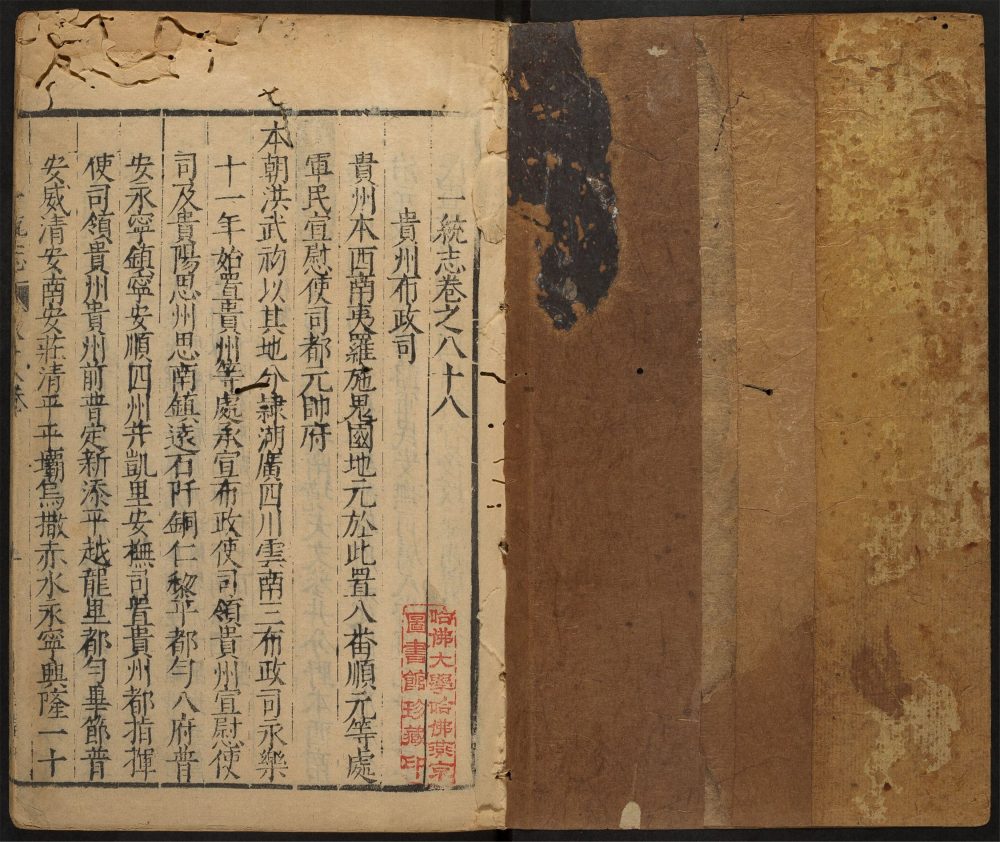 一統志卷之八十八
貴州布政司
貴州本西南夷羅施鬼國地元於此置八番順元等處
軍民宣慰使司都元帥府
本朝洪武初以其地分隸湖廣四川雲南三布政司永樂
十一年始置貴州等處承宣布政使司領貴州宣慰使
司及貴陽思州思南鎮遠石阡銅仁黎平都勻八府普
安永寧鎮寧安順四州并凱里安撫司置貴州都指揮
使司領貴州貴州前普定新添平越龍里都勻畢節普
安威清安南安莊清平平壩烏撒赤水永寧興隆一十
哈佛大學哈佛燕京
圖書館珍藏印